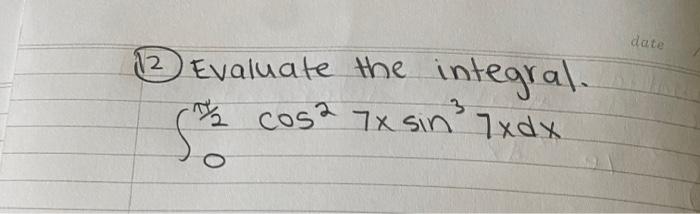 date
12 Evaluate the integral.
∫₀^π/2 cos² 7x sin³ 7xdx